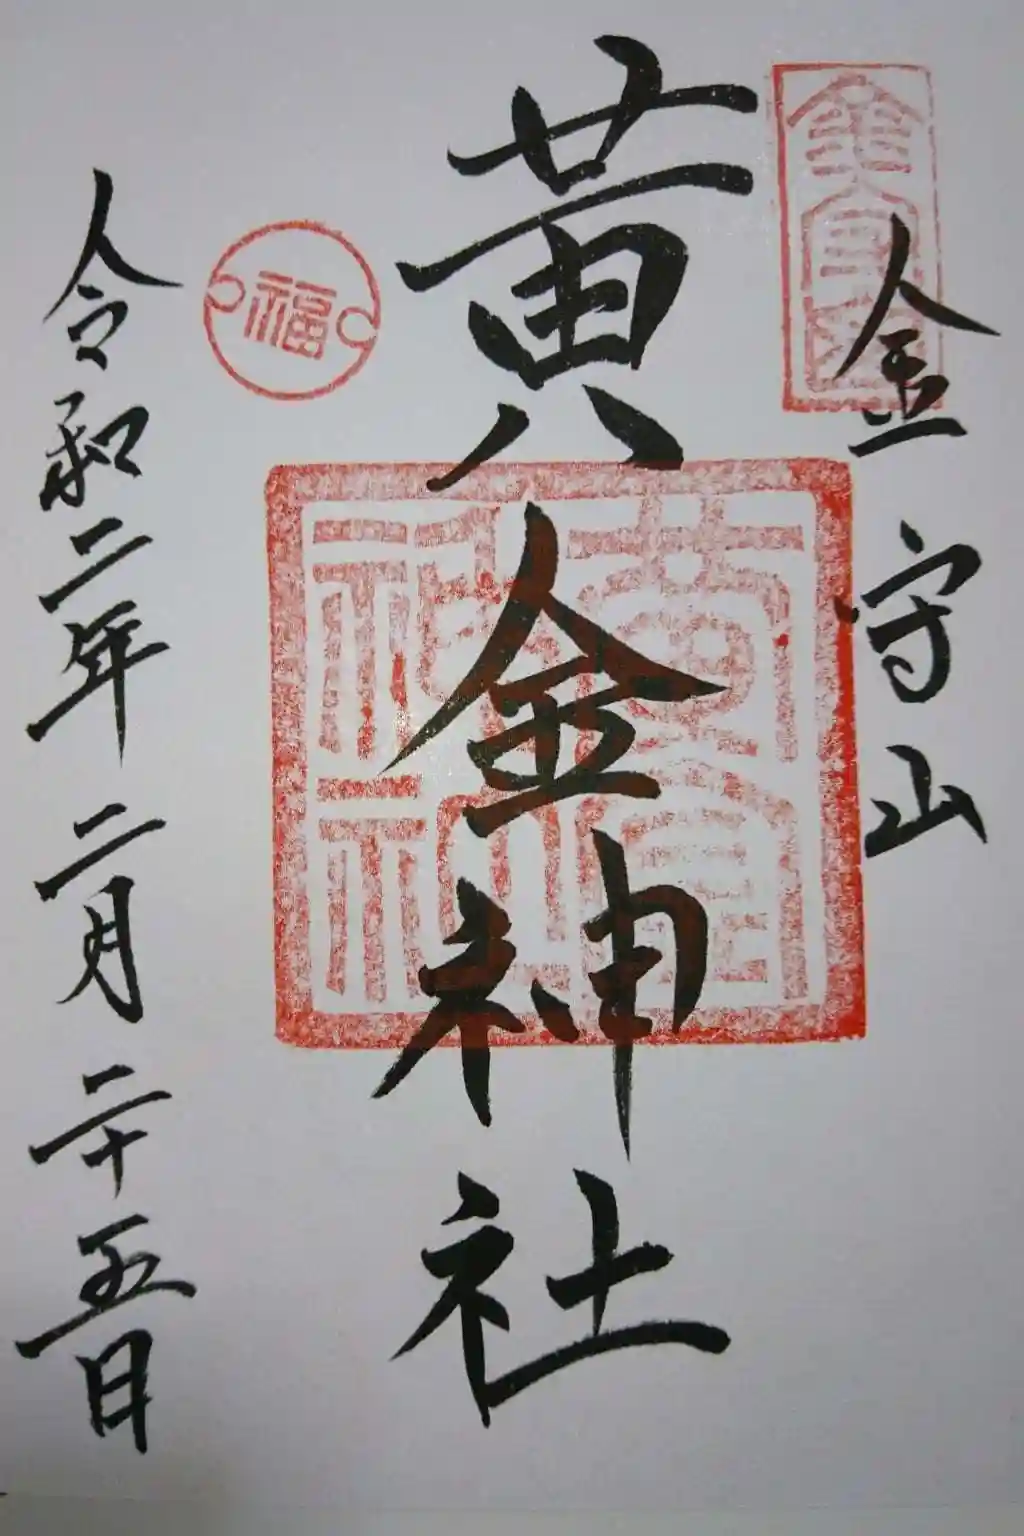 金守山
黄金神社
黄金神社
福
令和二年二月二十五日